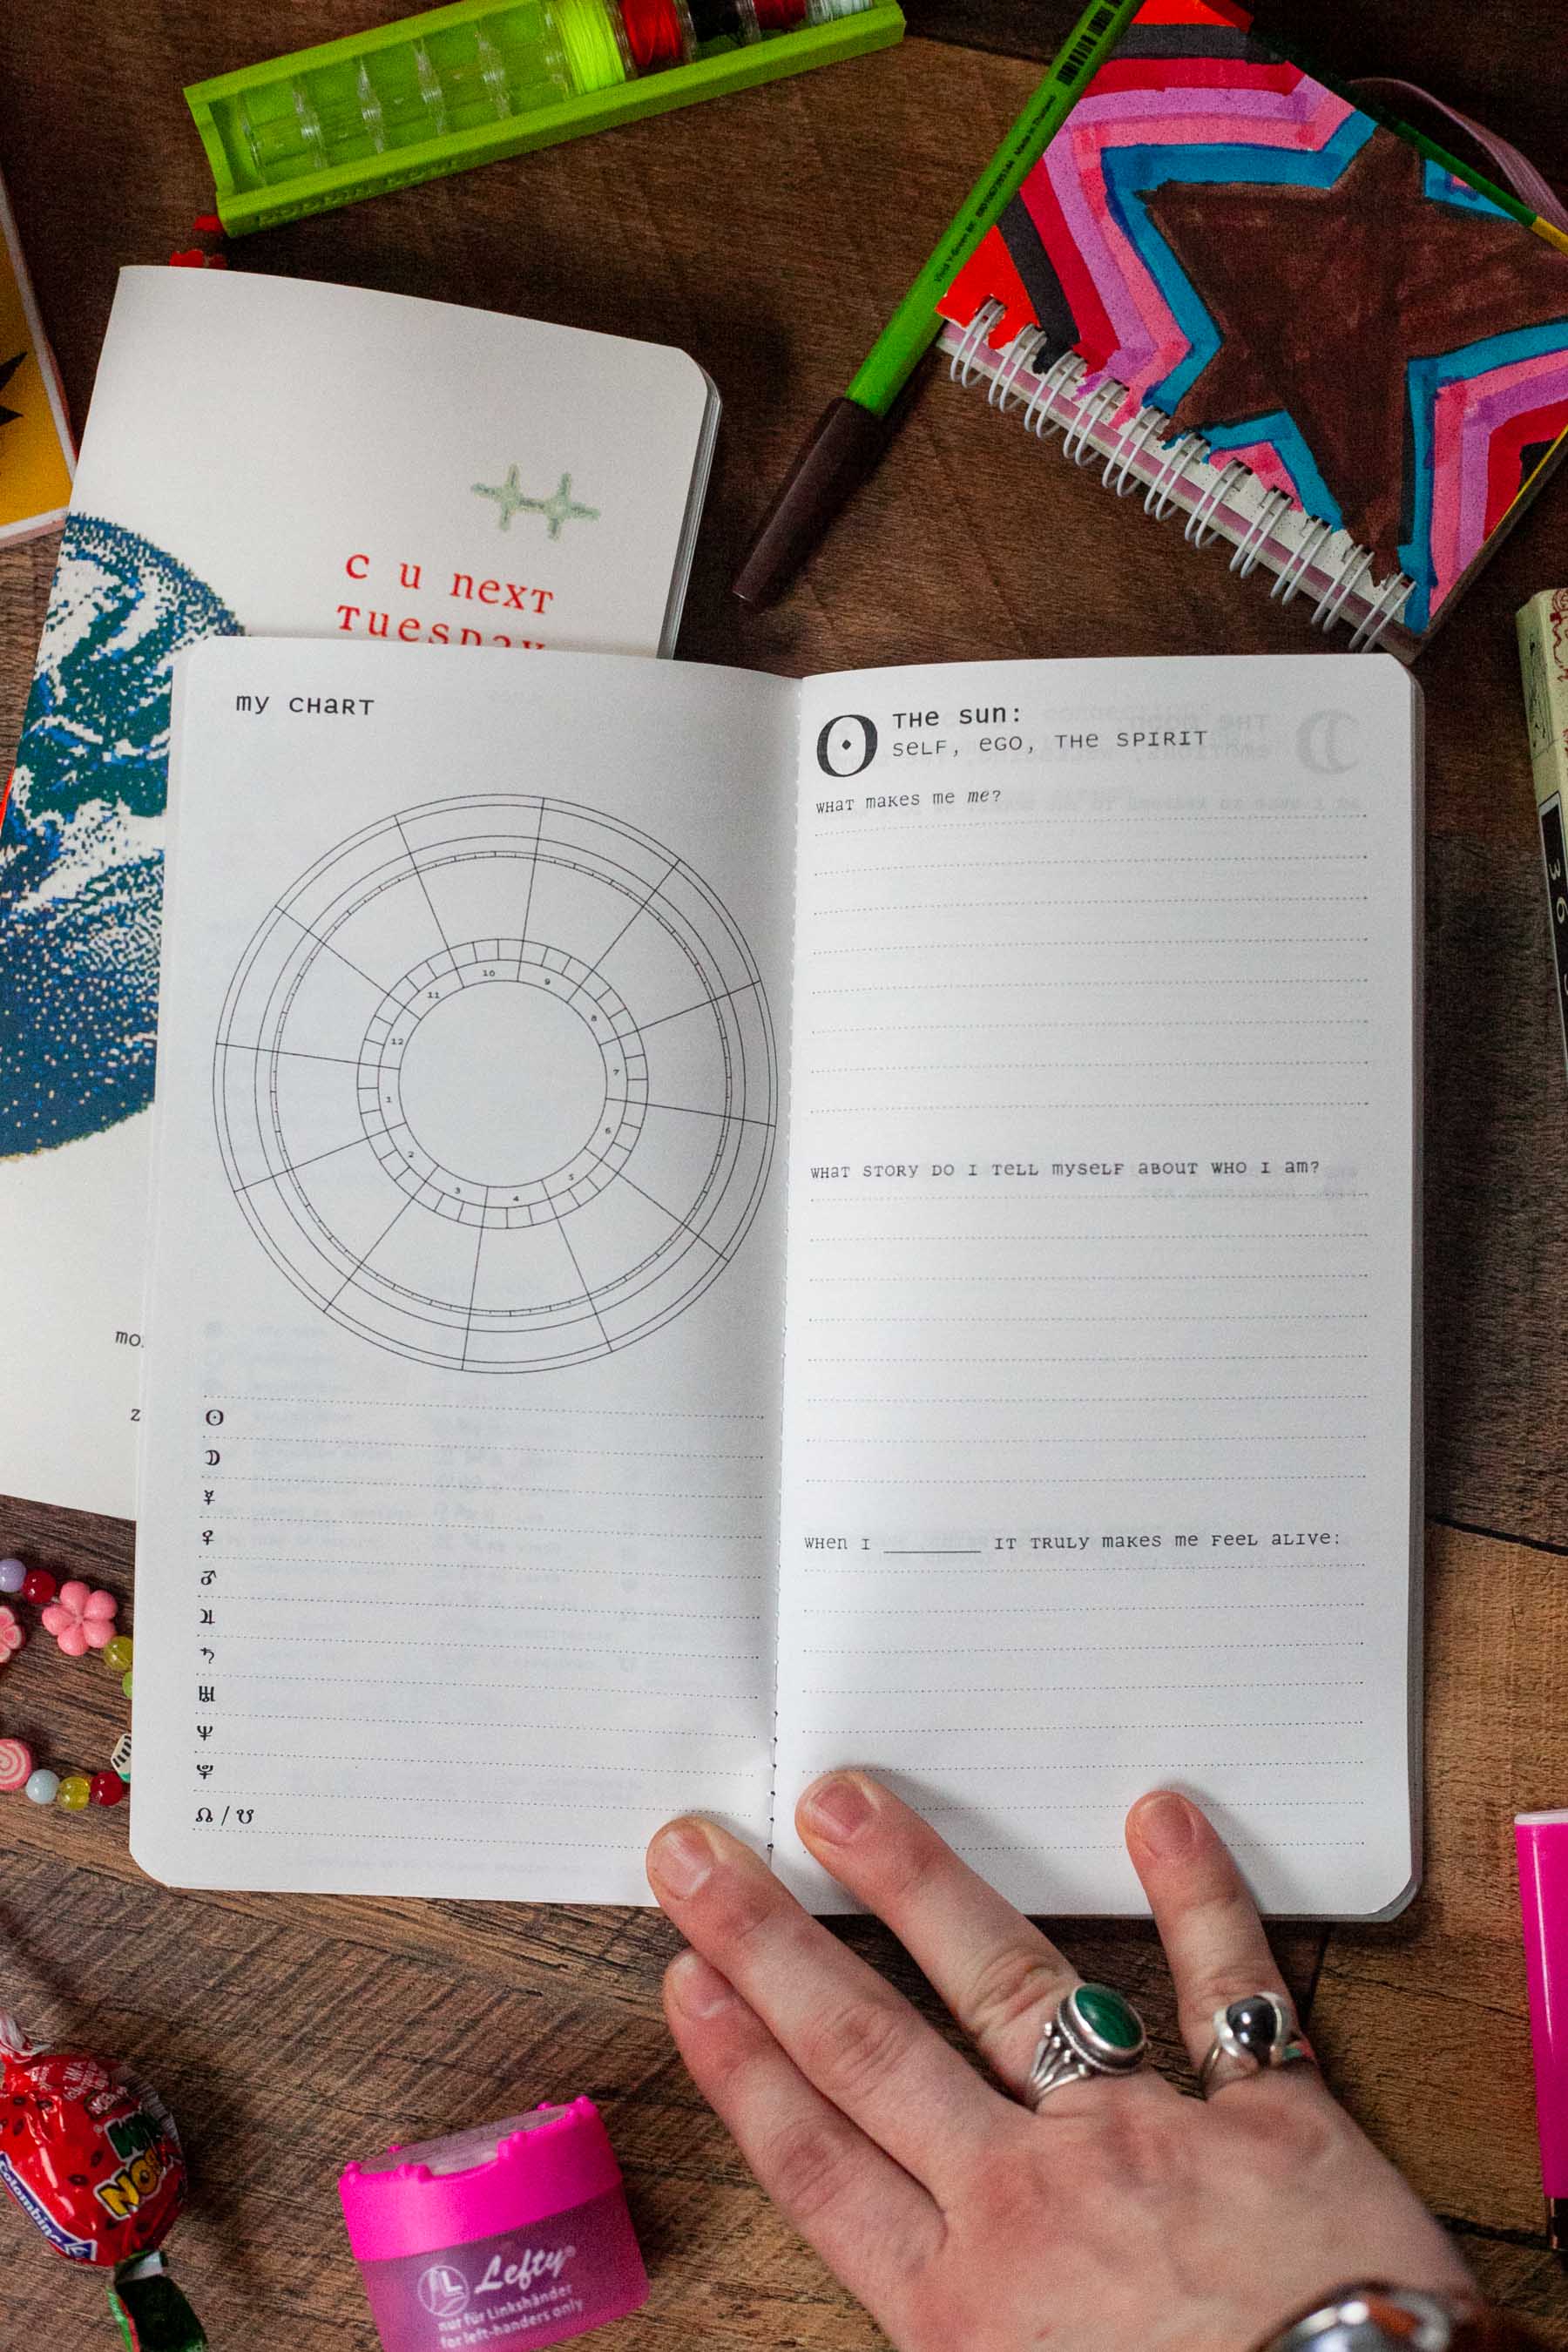 c u next
Tuesday
my chart
The sun:
self, ego, the spirit
what makes me me?
what story do I tell myself about who I am?
when I ________ it truly makes me feel alive:
10
9
11
8
12
7
1
6
2
5
3
4
☉
☽
☿
♀
♂
♃
♄
♅
♆
♇
☊ / ☋
mo
z
3 6
Lefty®
nur für Linkshänder
for left-handers only
Colombina